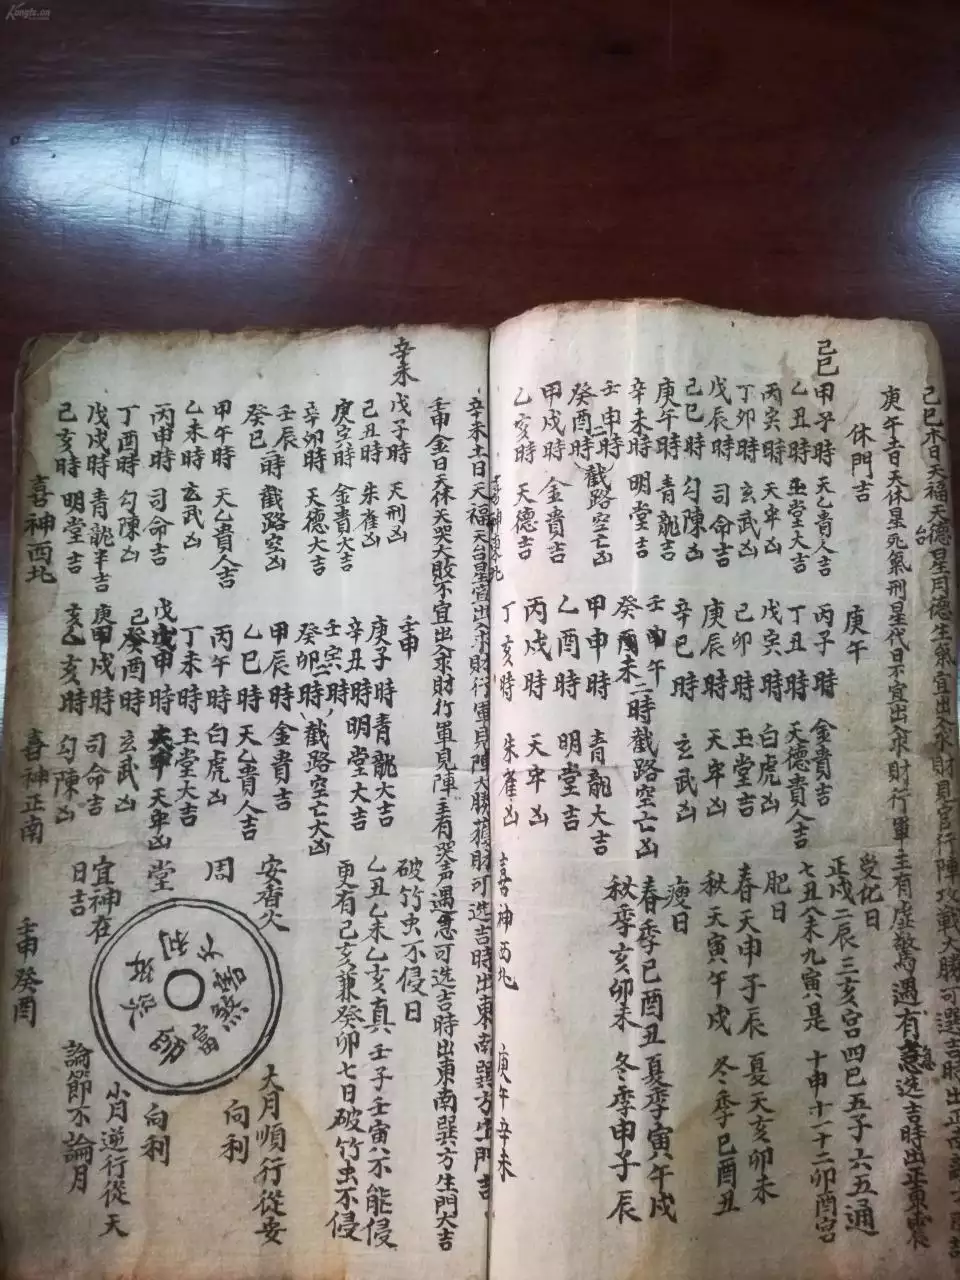 Kongfz.cn
己巳木日天福天德星月德生氣宜出入求財見官行陣攻戰大勝可選吉時出正西
庚午土日天休星死氣刑星代日不宜出入求財行軍主有虛驚遇有急选吉時出正東震
休門吉
己巳
甲子時 天乙貴人吉
乙丑時 玉堂大吉
丙寅時 天牢凶
丁卯時 玄武凶
戊辰時 司命吉
己巳時 勾陳凶
庚午時 青龍吉
辛未時 明堂吉
壬申時
癸酉時 二時截路空亡凶
甲戌時 金貴吉
乙亥時 天德吉
喜神西北
庚午
丙子時 金貴吉
丁丑時 天德貴人吉
戊寅時 白虎凶
己卯時 玉堂吉
庚辰時 天牢凶
辛巳時 玄武凶
壬午
癸未二時截路空亡凶
甲申時 青龍大吉
乙酉時 明堂吉
丙戌時 天牢凶
丁亥時 朱雀凶
喜神西北
庚午辛未
受化日
正戌二辰三亥宫四巳五子六五通
七丑八未九寅是十申十一十二卯酉宫
肥日
春天申子辰 夏天亥卯未
秋天寅午戌 冬季巳酉丑
瘦日
春季巳酉丑 夏季寅午戌
秋季亥卯未 冬季申子辰
辛未土日天福天台星宜出入求財行軍見陣大勝獲財可选吉時出東南巽方生門吉
壬申金日天休天哭大敗不宜出入求財行軍見陣主有哭声遇急可选吉時出東南巽方生門大吉
辛未
戊子時 天刑凶
己丑時 朱雀凶
庚寅時 金貴大吉
辛卯時 天德大吉
壬辰
癸巳二時 截路空凶
甲午時 天乙貴人吉
乙未時 玄武凶
丙申時 司命吉
丁酉時 勾陳凶
戊戌時 青龍半吉
己亥時 明堂吉
喜神西北
壬申
庚子時 青龍大吉
辛丑時 明堂大吉
壬寅
癸卯二時 截路空亡大凶
甲辰時 金貴吉
乙巳時 天乙貴人吉
丙午時 白虎凶
丁未時 玉堂大吉
戊申時 天牢凶
己酉時 玄武凶
庚戌時 司命吉
辛亥時 勾陳凶
喜神正南
破竹虫不侵日
乙丑乙未乙亥真壬子壬寅不能侵
更有己亥兼癸卯七日破竹虫不侵
安香火
周
堂
宜神在
日吉
大月順行從安
向利
向利
小月逆行從天
論節不論月
壬申癸酉